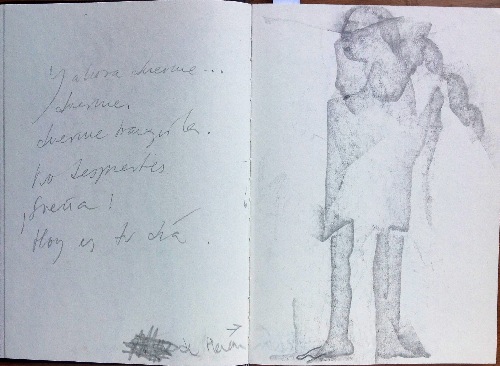 Y ahora duerme...
duerme.
duerme tranquila.
No despiertes
¡Sueña!
Hoy es tu día.
de